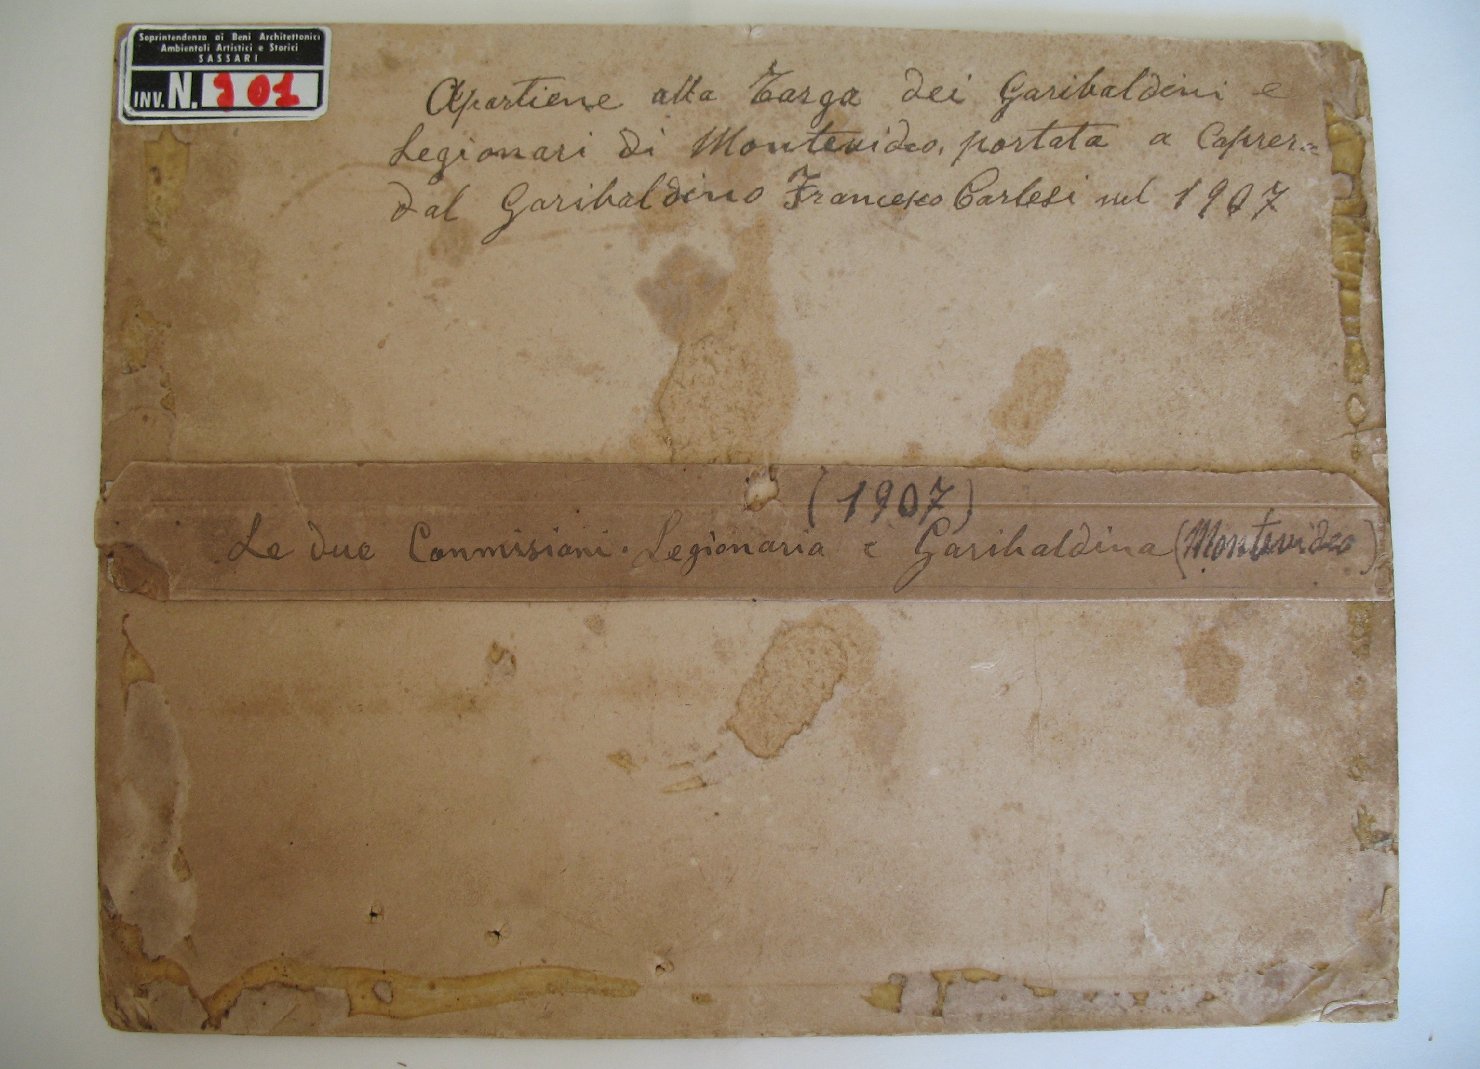 Soprintendenza ai Beni Architettonici
Ambientali Artistici e Storici
SASSARI
INV. N. 101
Apartiene alla Targa dei Garibaldini e
Legionari di Montevideo, portata a Caprera
dal Garibaldino Francesco Carlesi nel 1907
(1907)
Le due Commisioni. Legionaria e Garibaldina (Montevideo)